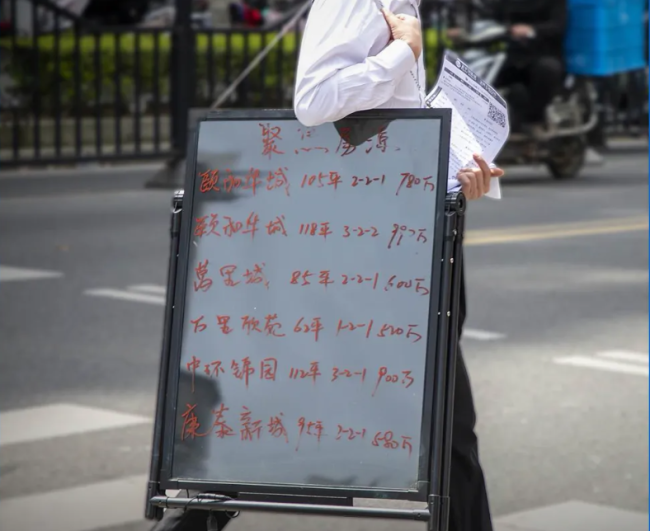 聚焦房源
颐和华城 105平 2-2-1 780万
颐和华城 118平 3-2-2
萬里城 85平 2-2-1 600万
万里欣苑 62平 1-2-1 520万
中环锦园 112平 3-2-1 900万
康泰新城 95平 2-2-1 580万